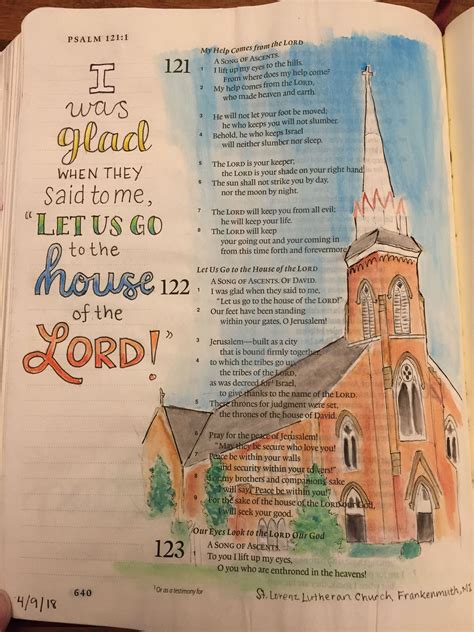 PSALM 121:1
I
was
glad
WHEN THEY
Said to me,
"LET US GO
to the
house
of the
LORD!"
My Help Comes from the LORD
121 A SONG OF ASCENTS.
1 I lift up my eyes to the hills.
From where does my help come?
2 My help comes from the LORD,
who made heaven and earth.
3 He will not let your foot be moved;
he who keeps you will not slumber.
4 Behold, he who keeps Israel
will neither slumber nor sleep.
5 The LORD is your keeper;
the LORD is your shade on your right hand.
6 The sun shall not strike you by day,
nor the moon by night.
7 The LORD will keep you from all evil;
he will keep your life.
8 The LORD will keep
your going out and your coming in
from this time forth and forevermore.
Let Us Go to the House of the LORD
122 A SONG OF ASCENTS. OF DAVID.
1 I was glad when they said to me,
"Let us go to the house of the LORD!"
2 Our feet have been standing
within your gates, O Jerusalem!
3 Jerusalem—built as a city
that is bound firmly together,
4 to which the tribes go up,
the tribes of the LORD,
as was decreed for Israel,
to give thanks to the name of the LORD.
5 There thrones for judgment were set,
the thrones of the house of David.
6 Pray for the peace of Jerusalem!
"May they be secure who love you!
7 Peace be within your walls
and security within your towers!"
8 For my brothers and companions' sake
I will say, "Peace be within you!"
9 For the sake of the house of the LORD our God,
I will seek your good.
Our Eyes Look to the LORD Our God
123 A SONG OF ASCENTS.
1 To you I lift up my eyes,
O you who are enthroned in the heavens!
4/9/18
640
1 Or as a testimony for
St. Lorenz Lutheran Church Frankenmuth, MI